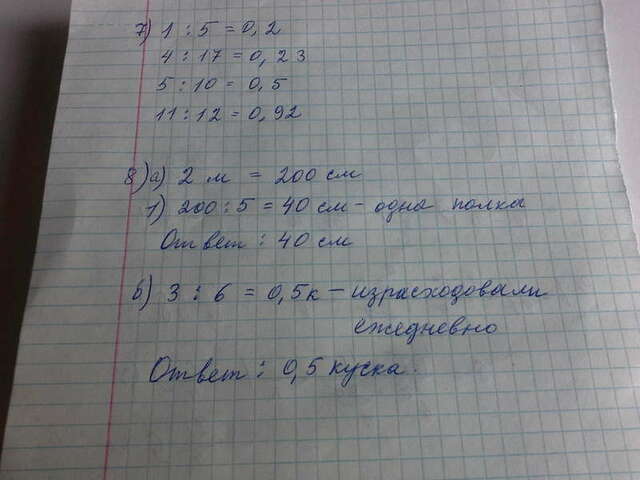 7) 1 : 5 = 0,2
4 : 17 = 0,23
5 : 10 = 0,5
11 : 12 = 0,92
8) а) 2 м = 200 см
1) 200 : 5 = 40 см - одна полка
Ответ : 40 см
б) 3 : 6 = 0,5к - израсходовали
ежедневно
Ответ : 0,5 куска.